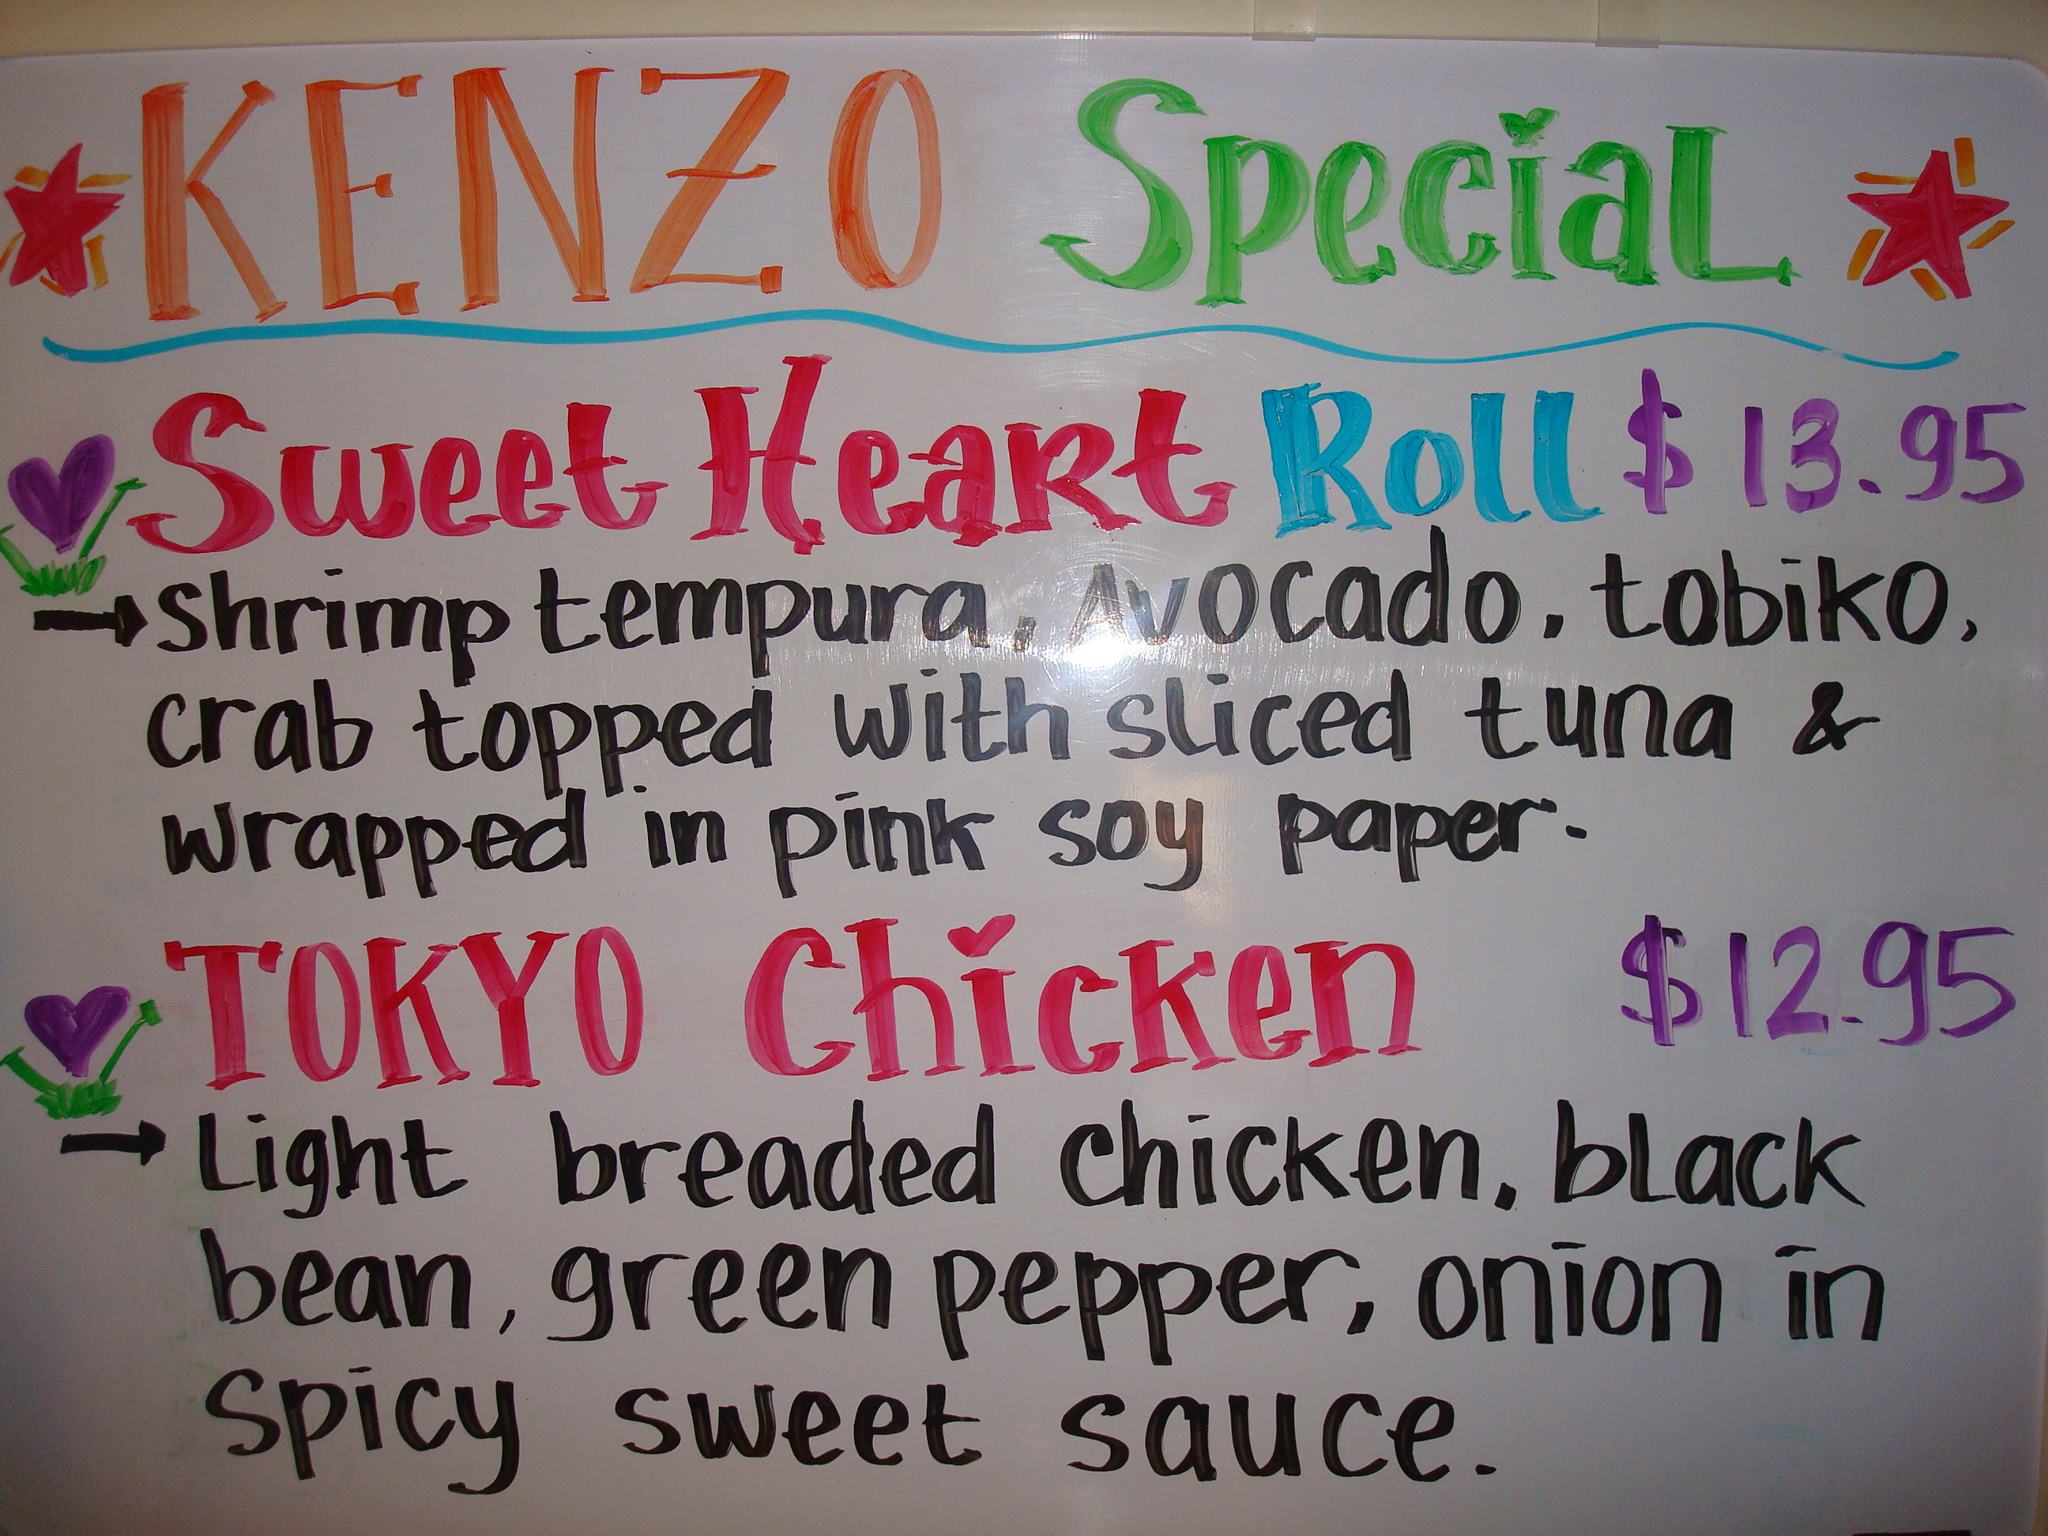 KENZO Special
Sweet Heart Roll $13.95
Shrimp tempura, Avocado, tobiko,
crab topped with sliced tuna &
wrapped in pink soy paper.
TOKYO Chicken $12.95
Light breaded chicken, black
bean, green pepper, onion in
Spicy sweet sauce.